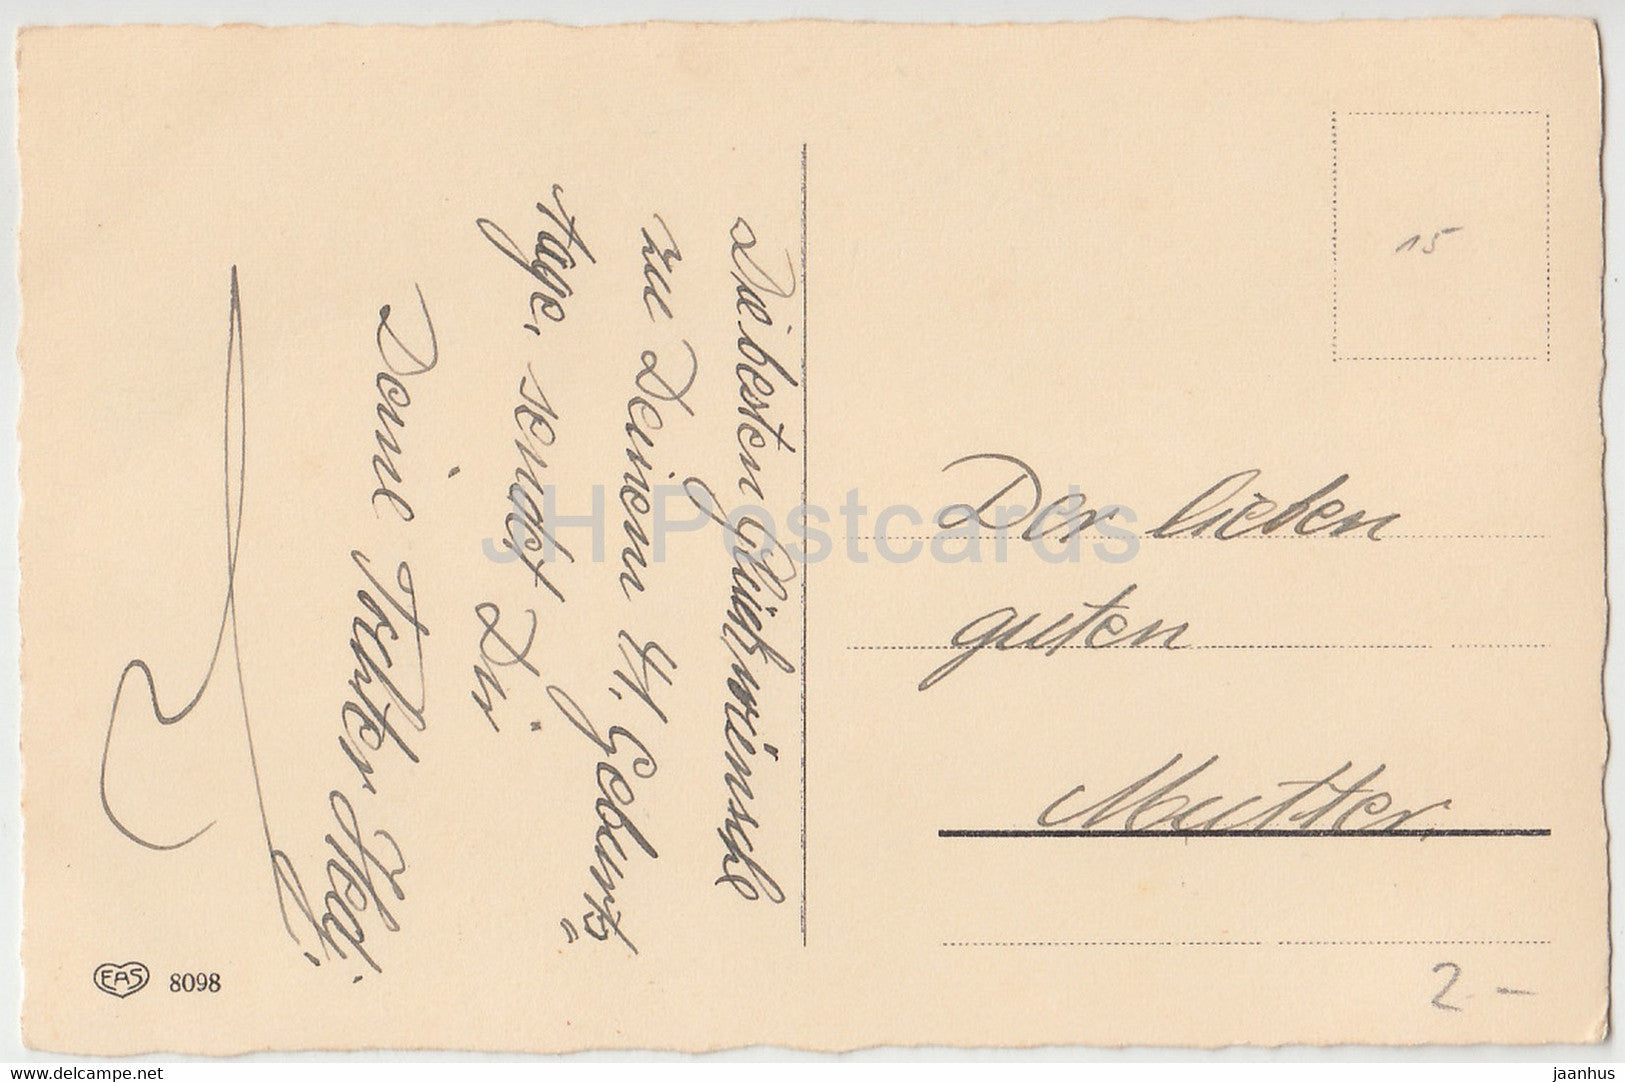 Die besten Glückwünsche
zu Deinem 41. Geburts=
tage, sendet Dir
Deine Tochter Hedi.
Der lieben
guten
Mutter.
15
2 -
EAS 8098
JH Postcards
delcampe.net
jaanhus